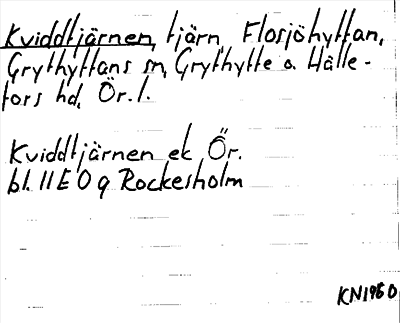 Kviddtjärnen, tjärn, Flosjöhyttan,
Grythyttans sn, Grythytte o. Hälle-
fors hd, Ör. l.
Kviddtjärnen ek Ör.
bl. 11E 0 g Rockesholm
KN1960